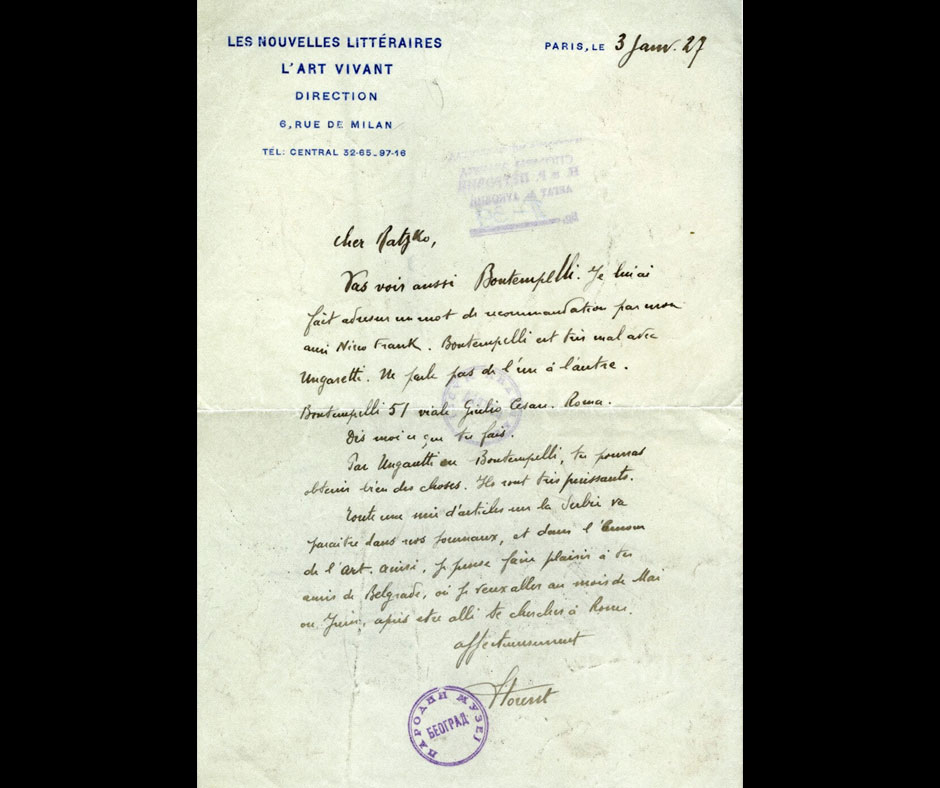 LES NOUVELLES LITTÉRAIRES
L'ART VIVANT
DIRECTION
6, RUE DE MILAN
TÉL: CENTRAL 32-65_97-16
PARIS, LE 3 Janv. 27
Cher Ratzko,
Vas voir aussi Bontempelli. Je lui ai
fait adresser un mot de recommandation par mon
ami Nino Frank. Bontempelli est très mal avec
Ungaretti. Ne parle pas de l'un à l'autre.
Bontempelli 51 viale Giulio Cesare. Roma.
Dis moi ce que tu fais.
Par Ungaretti ou Bontempelli, tu pourras
obtenir bien des choses. Ils sont très puissants.
Toute une série d'articles sur la Serbie va
paraître dans nos journaux, et dans l'Amour
de l'Art. Ainsi, je pense faire plaisir à tes
amis de Belgrade, où je veux aller au mois de Mai
ou Juin, après être allé te chercher à Rome.
affectueusement
НАРОДНИ МУЗЕЈ
БЕОГРАД